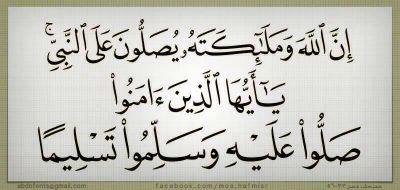 إِنَّ ٱللَّهَ وَمَلَٰٓئِكَتَهُۥ يُصَلُّونَ عَلَى ٱلنَّبِيِّ ۚ
يَٰٓأَيُّهَا ٱلَّذِينَ ءَامَنُوا۟
صَلُّوا۟ عَلَيْهِ وَسَلِّمُوا۟ تَسْلِيمًا
facebook.com/mos.hafmisr